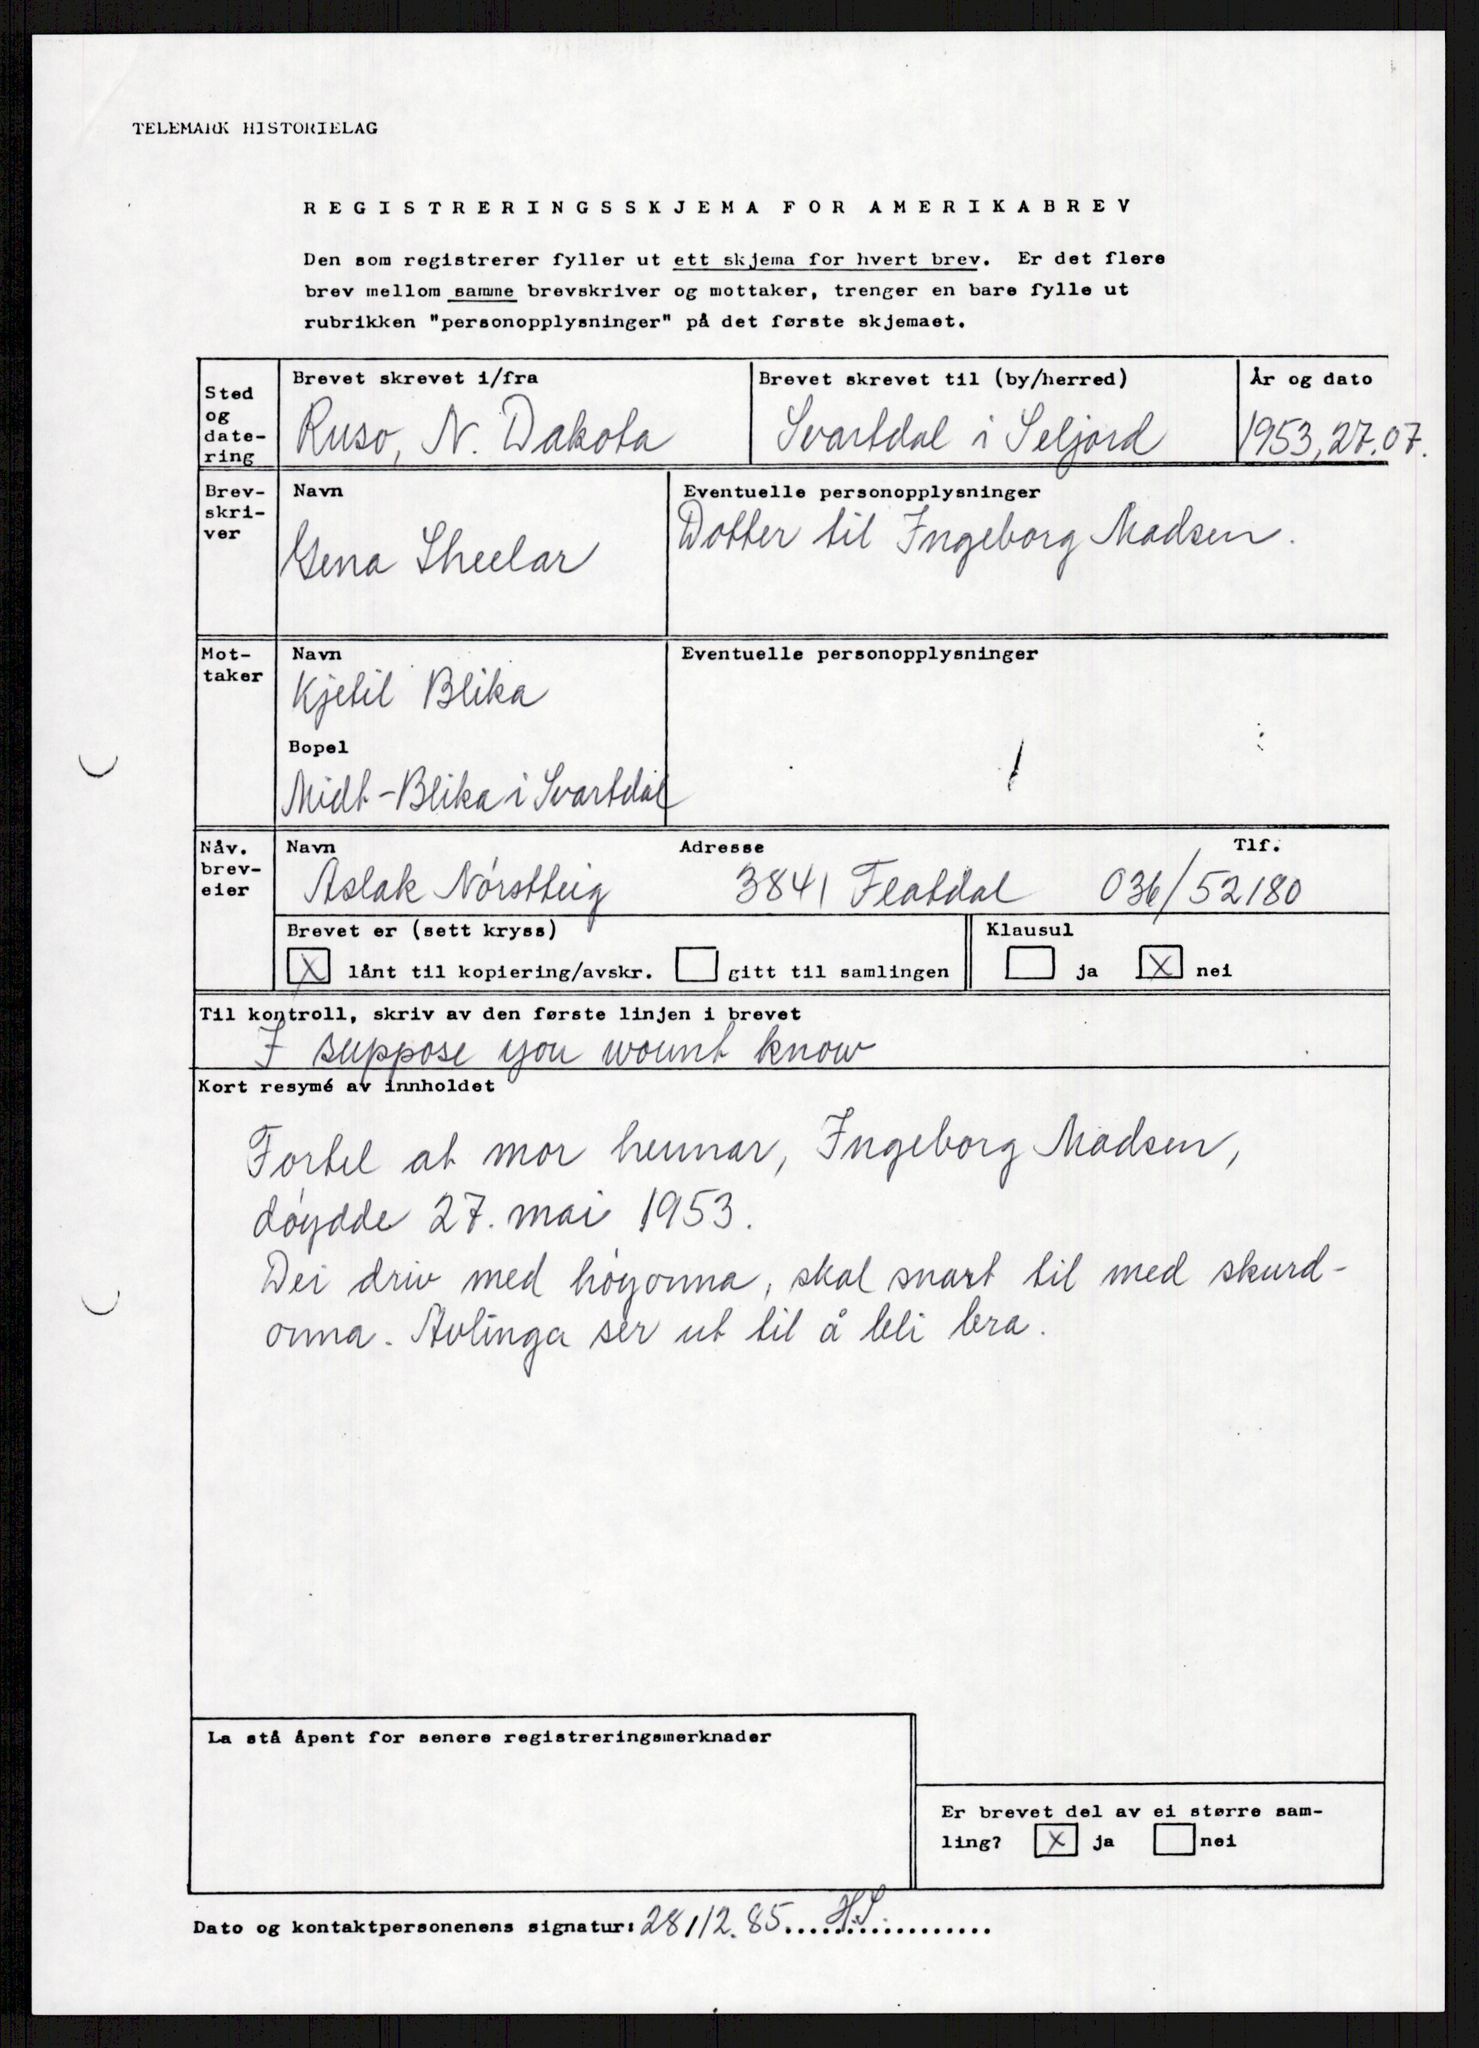 TELEMARK HISTORIELAG
REGISTRERINGSSKJEMA FOR AMERIKABREV
Den som registrerer fyller ut ett skjema for hvert brev. Er det flere
brev mellom samme brevskriver og mottaker, trenger en bare fylle ut
rubrikken "personopplysninger" på det første skjemaet.
Sted
og
date-
ring
Brevet skrevet i/fra
Ruso, N. Dakota
Brevet skrevet til (by/herred)
Svartdal i Seljord
År og dato
1953, 27.07.
Brev-
skri-
ver
Navn
Gena Sheelar
Eventuelle personopplysninger
Dotter til Ingeborg Madsen.
Mot-
taker
Navn
Kjetil Blika
Bopel
Midt-Blika i Svartdal
Eventuelle personopplysninger
Nåv.
brev-
eier
Navn
Aslak Nórstteig
Adresse
3841 Flatdal
Tlf.
036/52180
Brevet er (sett kryss)
X lånt til kopiering/avskr. gitt til samlingen
Klausul
ja X nei
Til kontroll, skriv av den første linjen i brevet
I suppose you wount know
Kort resymé av innholdet
Fortel at mor hennar, Ingeborg Madsen,
dóydde 27. mai 1953.
Dei driv med hóyonna, skal snart til med skurd-
onna. Avlinga ser ut til å bli bra.
La stå åpent for senere registreringsmerknader
Er brevet del av ei større sam-
ling? X ja nei
Dato og kontaktpersonenens signatur: 28/12.85. HS